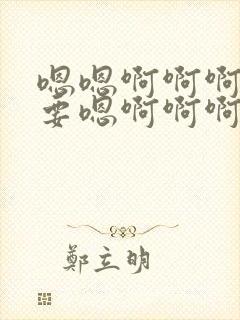 嗯嗯啊啊啊
要嗯啊啊啊
鄭立明